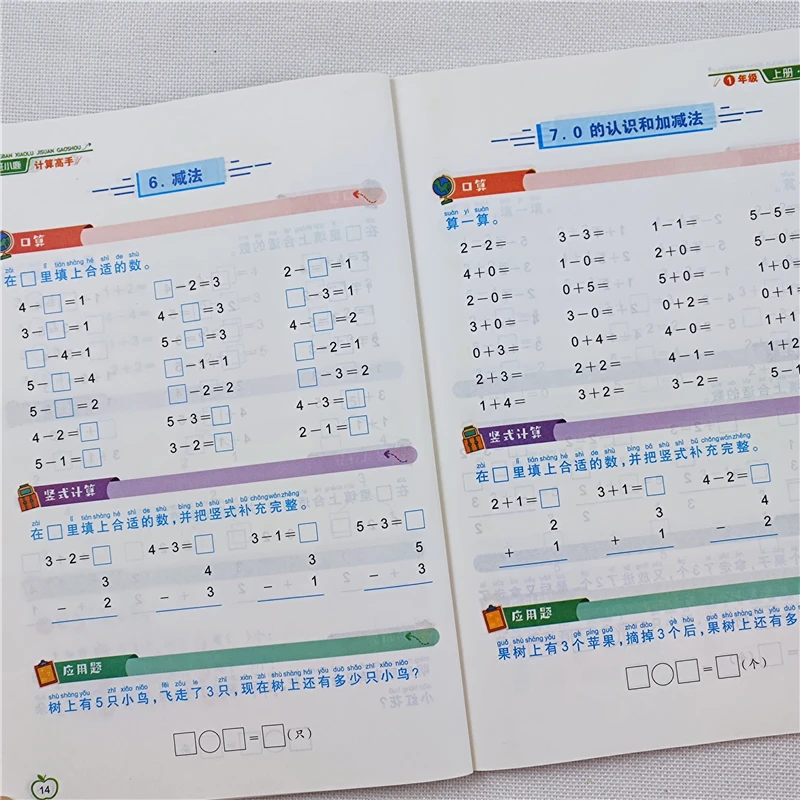 计算高手
6. 减法
口算
zài lǐ tián shàng hé shì de shù
在□里填上合适的数。
4－□＝1 □－2＝3 2－□＝1
3－□＝1 4－□＝3 □－3＝1
□－4＝1 5－□＝3 4－□＝2
5－□＝4 □－1＝1 □－2＝1
5－□＝2 □－2＝2 □－3＝2
4－2＝□ 5－3＝□ 4－3＝□
5－1＝□ 3－2＝□ 2－1＝□
竖式计算
zài lǐ tián shàng hé shì de shù bìng bǎ shù shì bǔ chōng wán zhěng
在□里填上合适的数，并把竖式补充完整。
3－2＝□ 4－3＝□ 3－1＝□ 5－3＝□
3 4 3 5
－ 2 － 3 － 1 － 3
应用题
shù shàng yǒu zhī xiǎo niǎo fēi zǒu le zhī xiàn zài shù shàng hái yǒu duō shǎo zhī xiǎo niǎo
树上有5只小鸟，飞走了3只，现在树上还有多少只小鸟？
□○□＝□(只)
14
1年级 上册
7. 0 的认识和加减法
口算
suàn yi suàn
算一算。
2－2＝ 3－3＝ 1－1＝ 5－5＝
4＋0＝ 1－0＝ 2＋0＝ 5－0＝
2－0＝ 0＋5＝ 5＋0＝ 1＋0
3＋0＝ 3－0＝ 0＋2＝ 0＋1
0＋3＝ 0＋4＝ 4－0＝ 1＋1
2＋3＝ 2＋2＝ 4－1＝ 1＋2
1＋4＝ 3＋2＝ 3－2＝ 5－1
竖式计算
zài lǐ tián shàng hé shì de shù bìng bǎ shù shì bǔ chōng wán zhěng
在□里填上合适的数，并把竖式补充完整。
2＋1＝□ 3＋1＝□ 4－2＝□
2 3 4
＋ 1 ＋ 1 － 2
应用题
guǒ shù shàng yǒu gè píng guǒ zhāi diào gè hòu guǒ shù shàng hái yǒu duō
果树上有3个苹果，摘掉3个后，果树上还有多
□○□＝□(个)